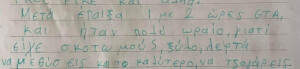 Μετά έπαιξα 1 με 2 ώρες GTA,
και ήταν πολύ ωραίο, γιατί
είχε σκοτωμούς, ξύλο, λεφτά
να μεθύσεις και το καλύτερο, να τσολάρεις.